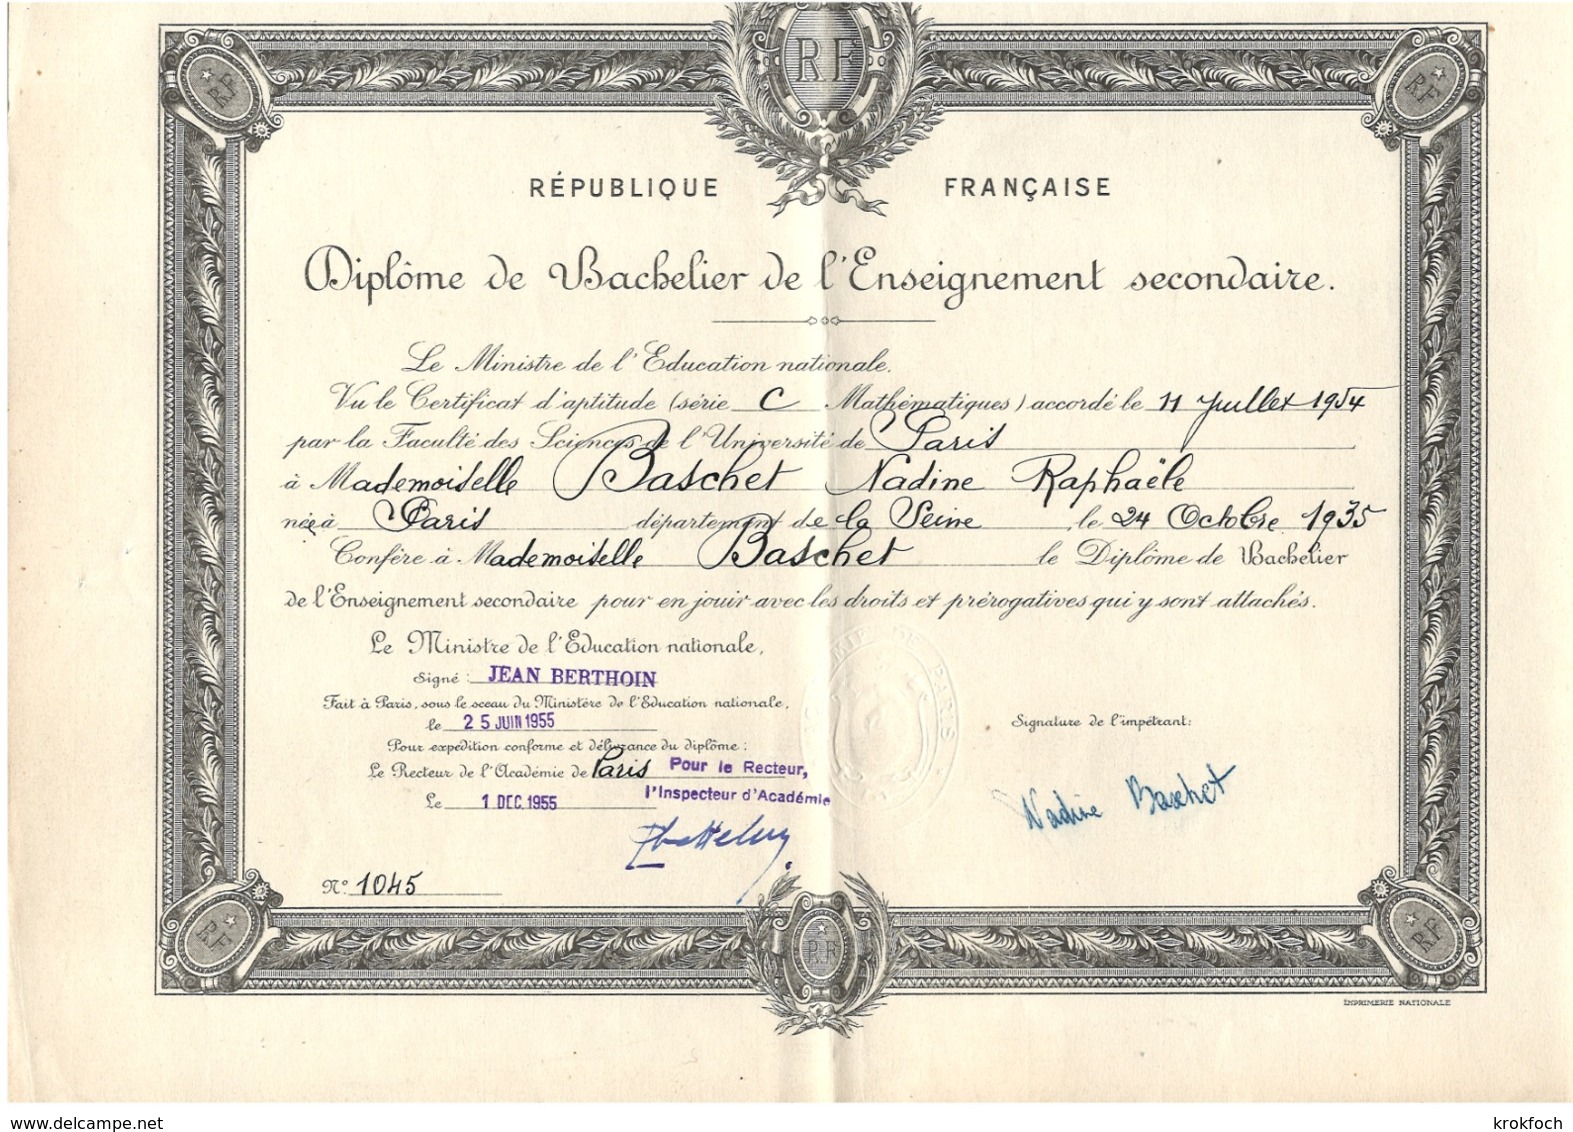 RF
RF
RF
RÉPUBLIQUE FRANÇAISE
Diplôme de Bachelier de l'Enseignement secondaire.
Le Ministre de l'Education nationale,
Vu le Certificat d'aptitude (série C Mathématiques) accordé le 11 Juillet 1954
par la Faculté des Sciences de l'Université de Paris
à Mademoiselle Baschet Nadine Raphaële
née à Paris département de la Seine, le 24 Octobre 1935
Confère à Mademoiselle Baschet le Diplôme de Bachelier
de l'Enseignement secondaire pour en jouir avec les droits et prérogatives qui y sont attachés.
Le Ministre de l'Education nationale,
Signé : JEAN BERTHOIN
Fait à Paris, sous le sceau du Ministère de l'Education nationale,
le 25 JUIN 1955
Signature de l'impétrant:
Pour expédition conforme et délivrance du diplôme :
Le Recteur de l'Académie de Paris Pour le Recteur,
l'Inspecteur d'Académie
Le 1 DEC. 1955
Nadine Baschet
N° 1045
ACADÉMIE DE PARIS
RF
RF
RF
IMPRIMERIE NATIONALE
www.delcampe.net
krokfoch